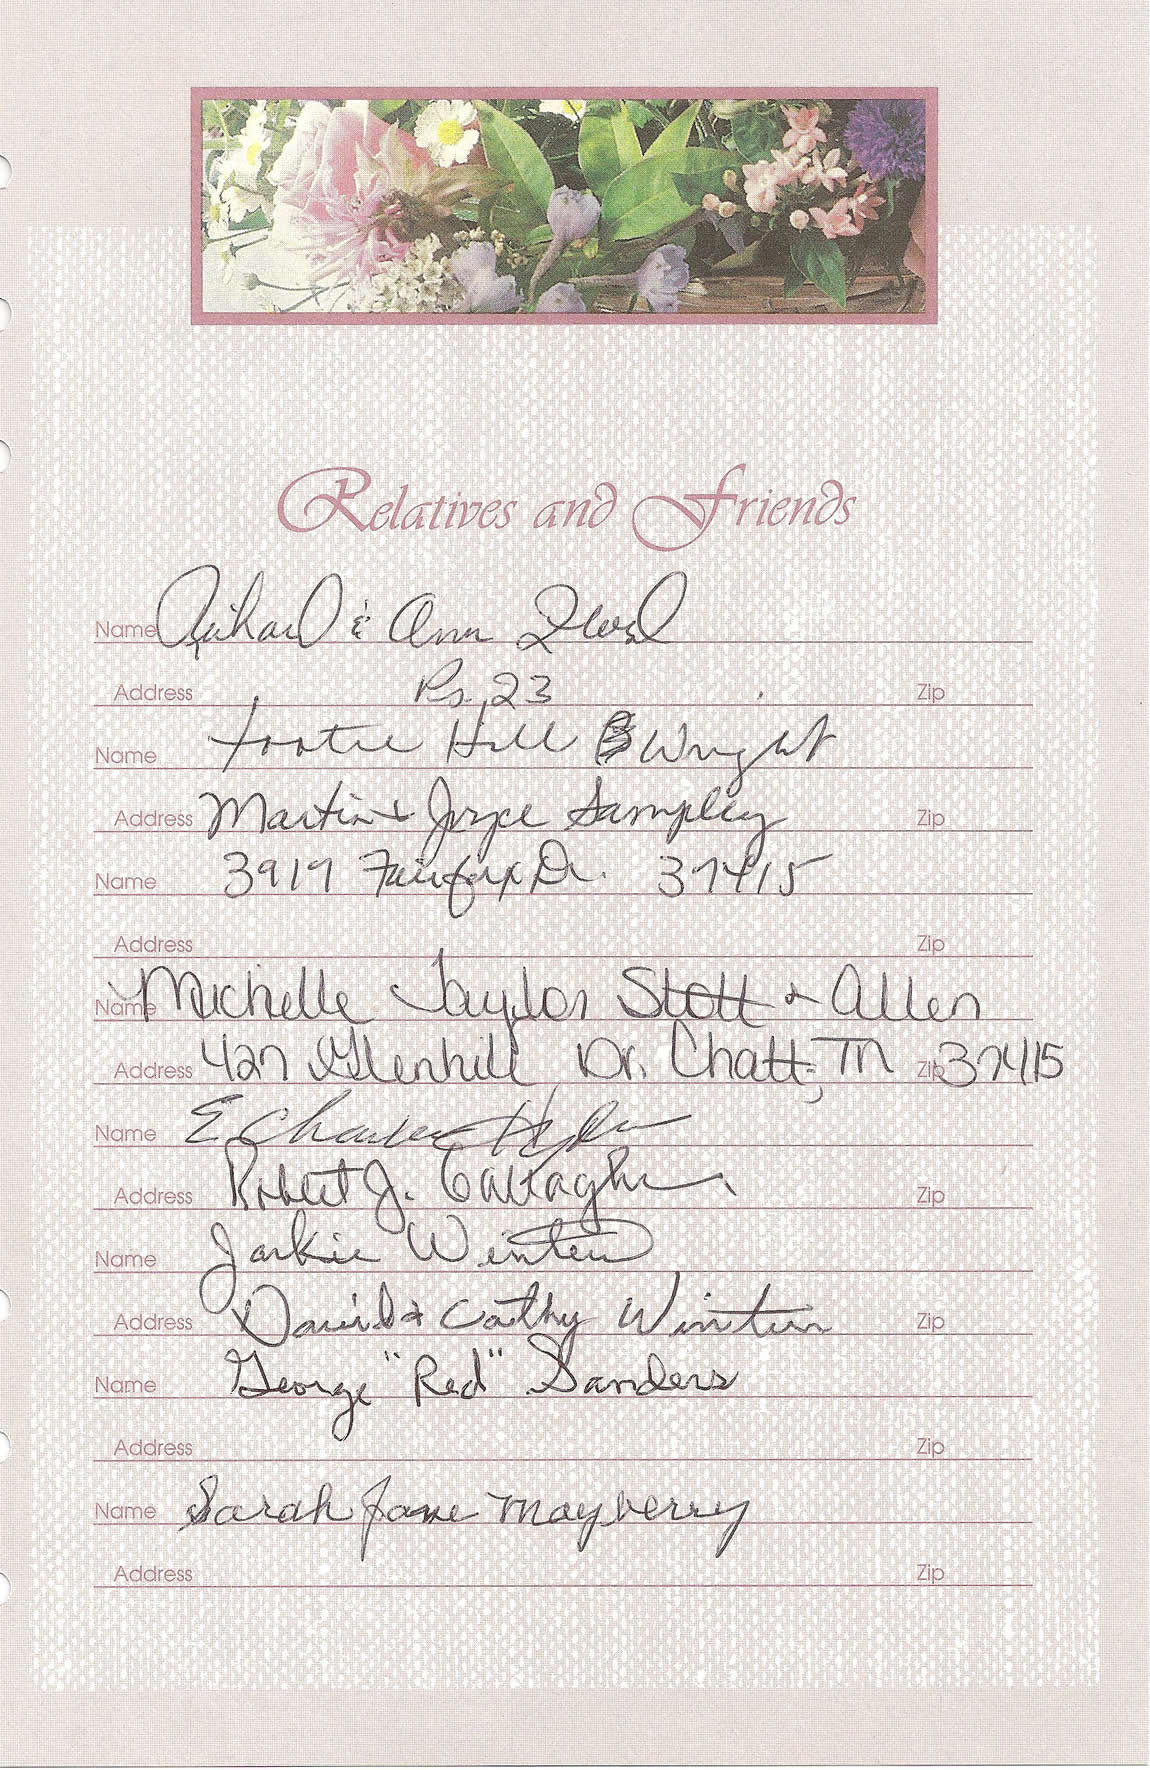 Relatives and Friends
Name Richard & Ann
Address Ps. 23 Zip
Name Tootie Hill Wright
Address Martin & Joyce Sampley Zip
Name 3919 Fairfax Dr. 37415
Address Zip
Name Michelle Taylor Stott & Allen
Address 427 Glenhill Dr. Chatt, TN Zip 37415
Name E. Charles
Address Robert J. Gallagher Zip
Name Jackie Winters
Address David & Cathy Zip
Name George "Red" Sanders
Address Zip
Name Sarah Jane Mayberry
Address Zip